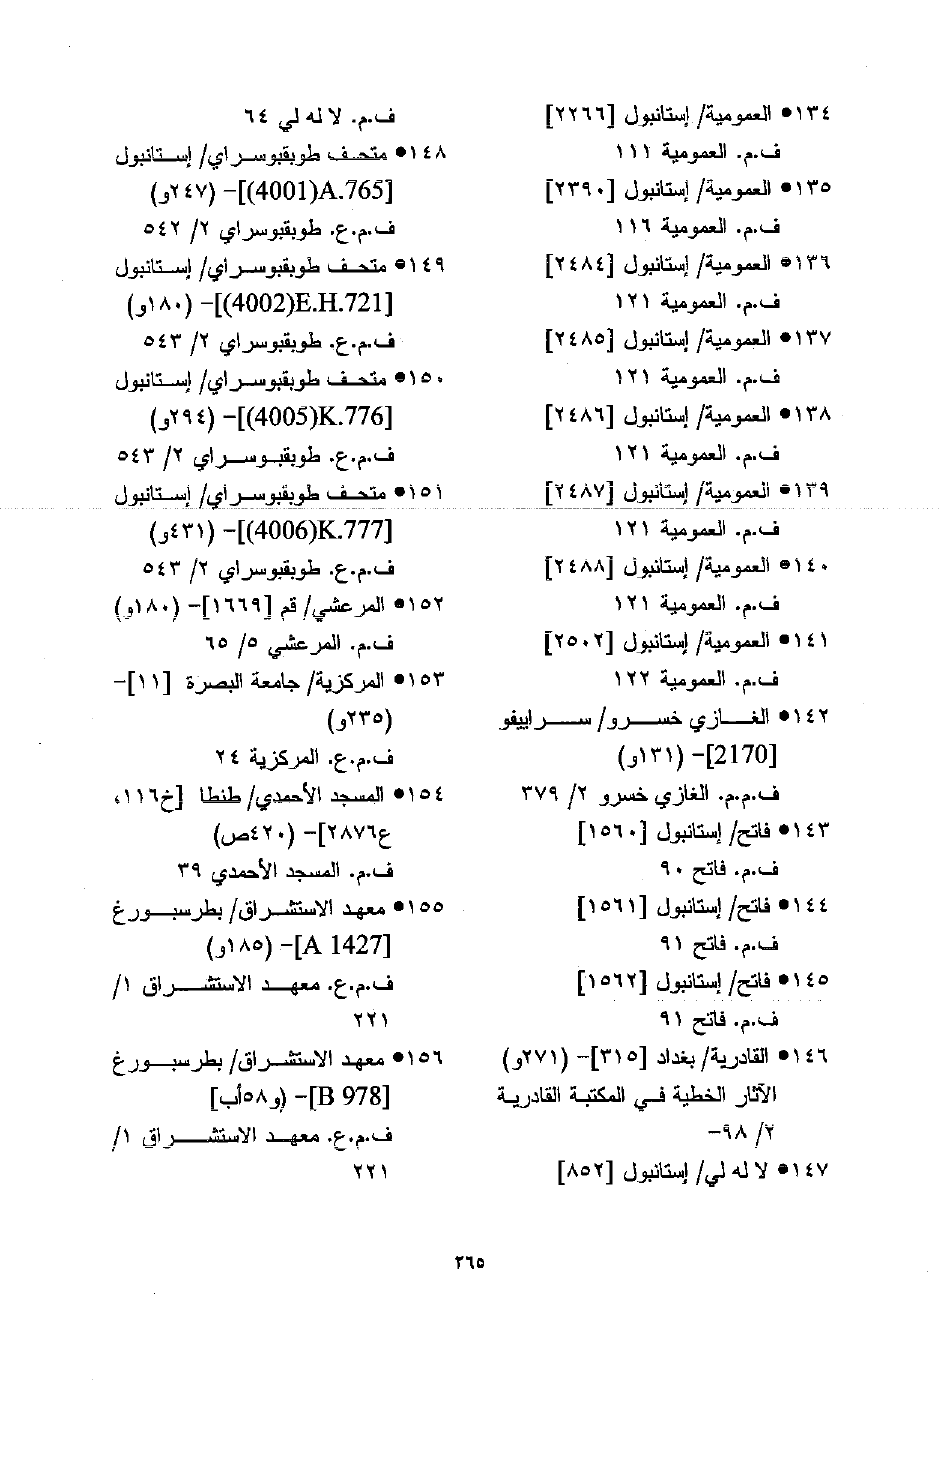 ١٣٤• العمومية/ إستانبول [٢٢٦٦]
ف.م. العمومية ١١١
١٣٥• العمومية/ إستانبول [٢٣٩٠]
ف.م. العمومية ١١٦
١٣٦• العمومية/ إستانبول [٢٤٨٤]
ف.م. العمومية ١٢١
١٣٧• العمومية/ إستانبول [٢٤٨٥]
ف.م. العمومية ١٢١
١٣٨• العمومية/ إستانبول [٢٤٨٦]
ف.م. العمومية ١٢١
١٣٩• العمومية/ إستانبول [٢٤٨٧]
ف.م. العمومية ١٢١
١٤٠• العمومية/ إستانبول [٢٤٨٨]
ف.م. العمومية ١٢١
١٤١• العمومية/ إستانبول [٢٥٠٢]
ف.م. العمومية ١٢٢
١٤٢• الغازي خسرو/ سراييفو
[2170]– (١٣١و)
ف.م.م. الغازي خسرو ٢/ ٣٧٩
١٤٣• فاتح/ إستانبول [١٥٦٠]
ف.م. فاتح ٩٠
١٤٤• فاتح/ إستانبول [١٥٦١]
ف.م. فاتح ٩١
١٤٥• فاتح/ إستانبول [١٥٦٢]
ف.م. فاتح ٩١
١٤٦• القادرية/ بغداد [٣١٥]– (٢٧١و)
الآثار الخطية في المكتبة القادرية
٢/ ٩٨–
١٤٧• لا له لي/ إستانبول [٨٥٢]
ف.م. لا له لي ٦٤
١٤٨• متحف طوبقبوسراي/ إستانبول
[(4001)A.765]– (٢٤٧و)
ف.م.ع. طوبقبوسراي ٢/ ٥٤٢
١٤٩• متحف طوبقبوسراي/ إستانبول
[(4002)E.H.721]– (١٨٠و)
ف.م.ع. طوبقبوسراي ٢/ ٥٤٣
١٥٠• متحف طوبقبوسراي/ إستانبول
[(4005)K.776]– (٢٩٤و)
ف.م.ع. طوبقبوسراي ٢/ ٥٤٣
١٥١• متحف طوبقبوسراي/ إستانبول
[(4006)K.777]– (٤٣١و)
ف.م.ع. طوبقبوسراي ٢/ ٥٤٣
١٥٢• المرعشي/ قم [١٦٦٩]– (١٨٠و)
ف.م. المرعشي ٥/ ٦٥
١٥٣• المركزية/ جامعة البصرة [١١]–
(٢٣٥و)
ف.م.ع. المركزية ٢٤
١٥٤• المسجد الأحمدي/ طنطا [خ١١٦،
ع٢٨٧٦]– (٤٢٠ص)
ف.م. المسجد الأحمدي ٣٩
١٥٥• معهد الاستشراق/ بطرسبورغ
[A 1427]– (١٨٥و)
ف.م.ع. معهد الاستشراق ١/
٢٢١
١٥٦• معهد الاستشراق/ بطرسبورغ
[B 978]– (و٥٨أب]
ف.م.ع. معهد الاستشراق ١/
٢٢١
٢٦٥